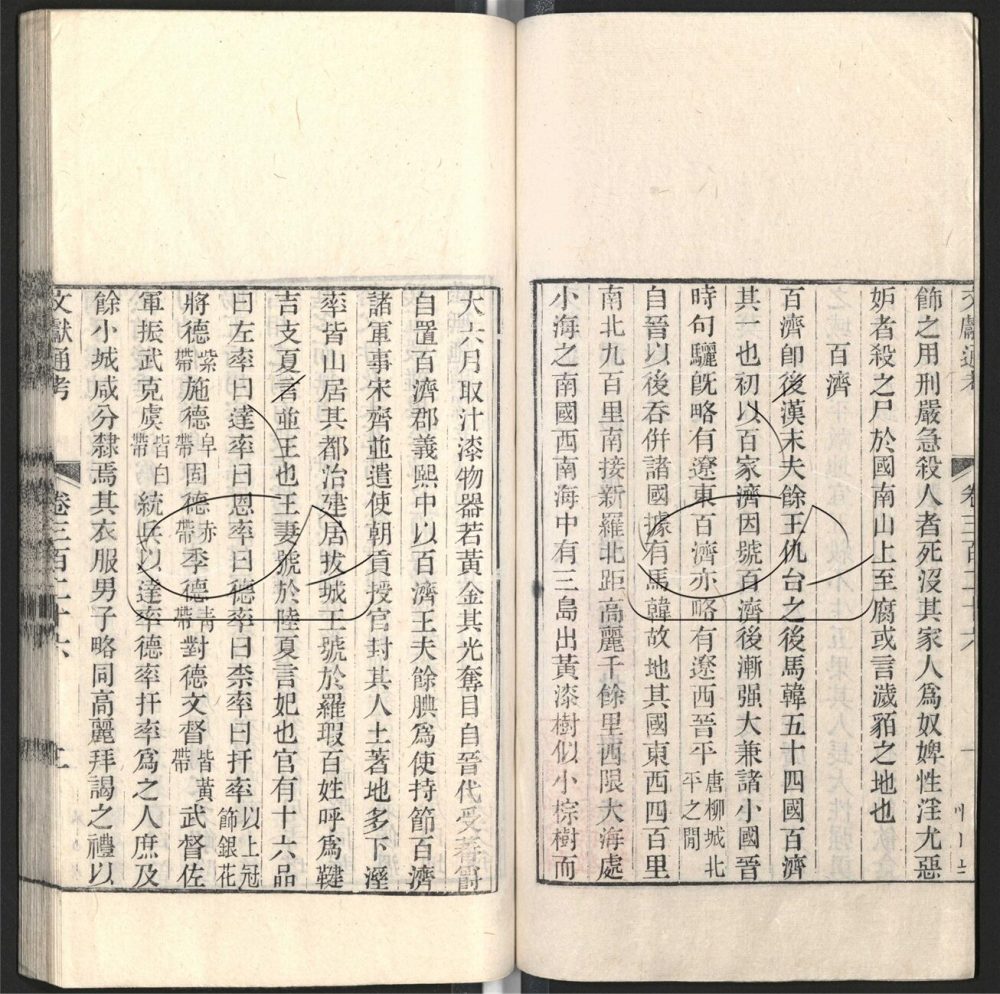 飾之用刑嚴急殺人者死沒其家人爲奴婢性淫尤惡
妒者殺之尸於國南山上至腐或言濊貊之地也
百濟
百濟卽後漢末夫餘王仇台之後馬韓五十四國百濟
其一也初以百家濟因號百濟後漸强大兼諸小國晉
時句驪旣略有遼東百濟亦略有遼西晉平唐柳城北平之閒
自晉以後吞併諸國據有馬韓故地其國東西四百里
南北九百里南接新羅北距高麗千餘里西限大海處
小海之南國西南海中有三島出黃漆樹似小棕樹而
大六月取汁漆物器若黃金其光奪目自晉代受蕃爵
自置百濟郡義熙中以百濟王夫餘腆爲使持節百濟
諸軍事宋齊並遣使朝貢授官封其人土著地多下溼
率皆山居其都治建居拔城王號於羅瑕百姓呼爲鞬
吉支夏言並王也王妻號於陸夏言妃也官有十六品
曰左率曰達率曰恩率曰德率曰柰率曰扞率以上冠飾銀花
將德紫帶施德皁帶固德赤帶季德青帶對德文督皆黃帶武督佐
軍振武克虞皆白帶統兵以達率德率扞率爲之人庶及
餘小城咸分隸焉其衣服男子略同高麗拜謁之禮以
文獻通考 卷三百二十六